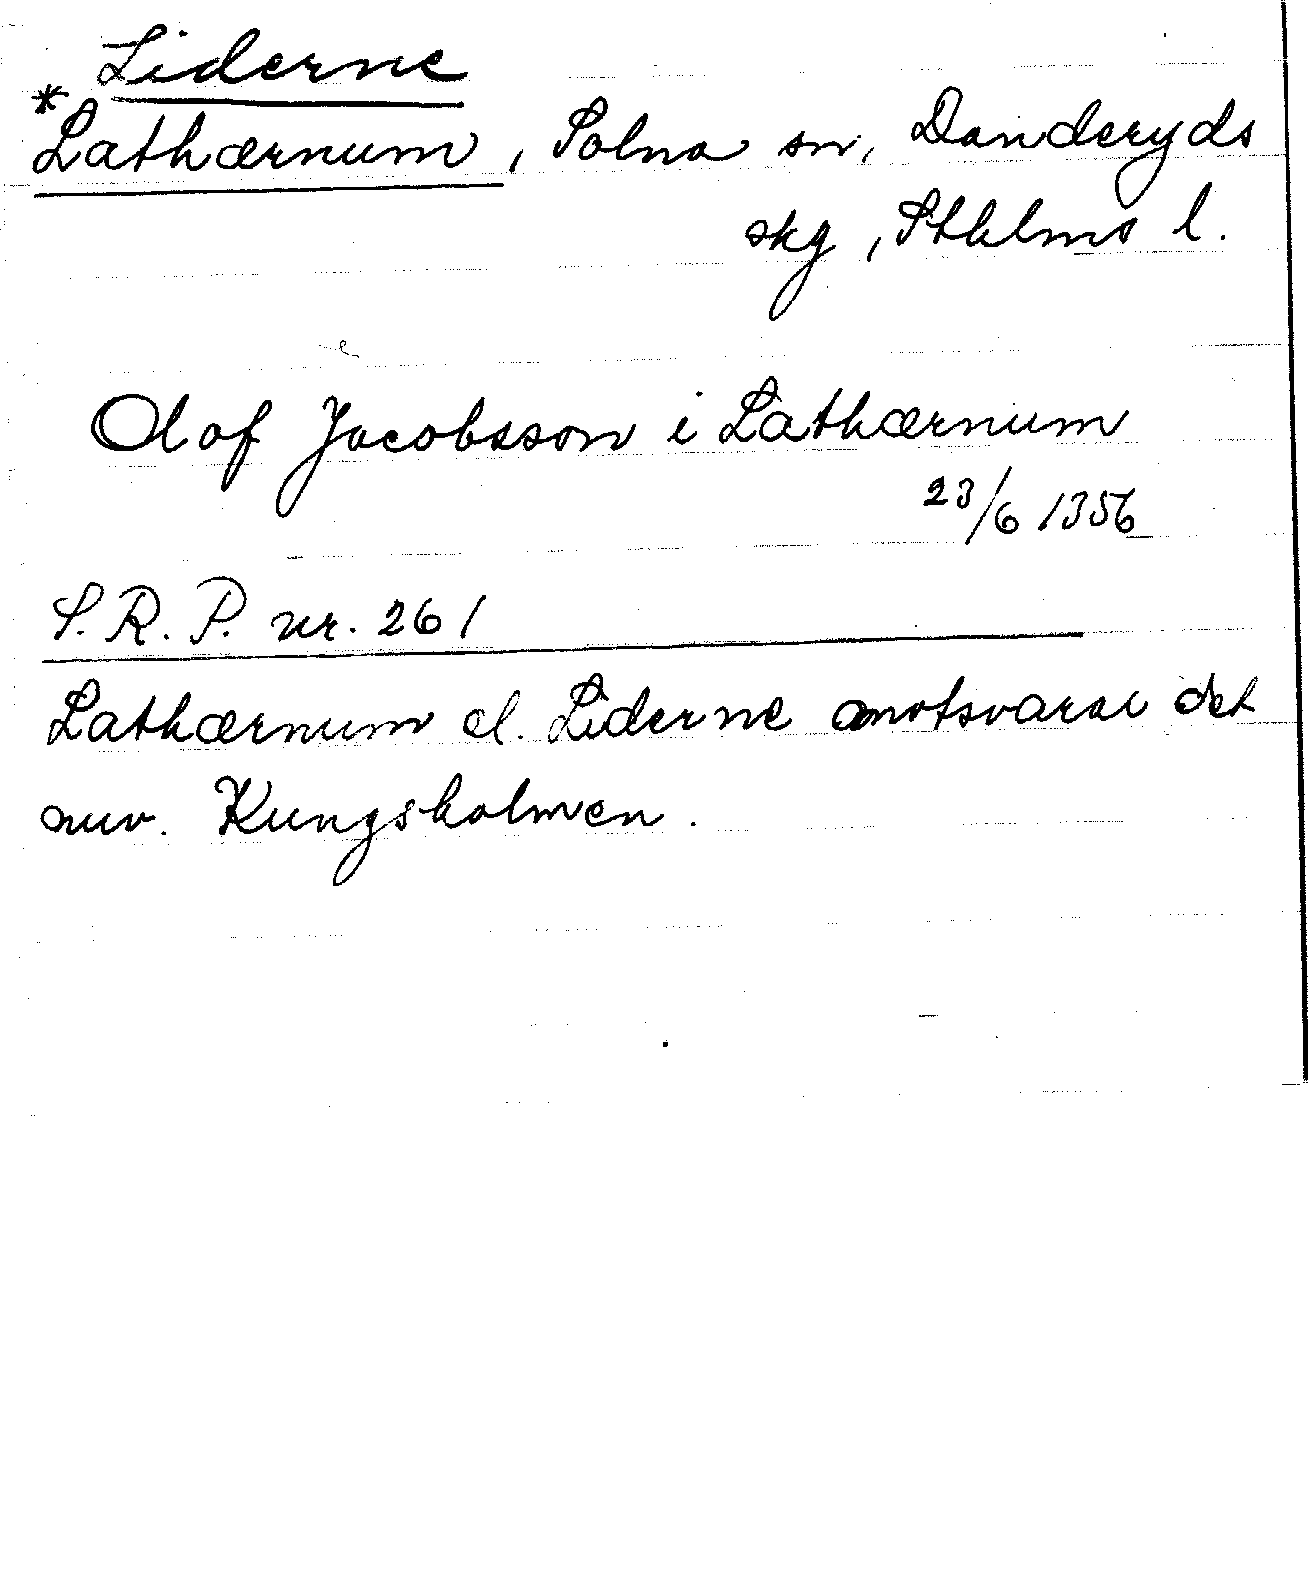 Liderne
*Lathærnum, Solna sn, Danderyds
skg, Sthlms l.
Olof Jacobsson i Lathærnum
23/6 1356
S.R.P. nr. 261
Lathærnum el. Liderne motsvarar det
nuv. Kungsholmen.